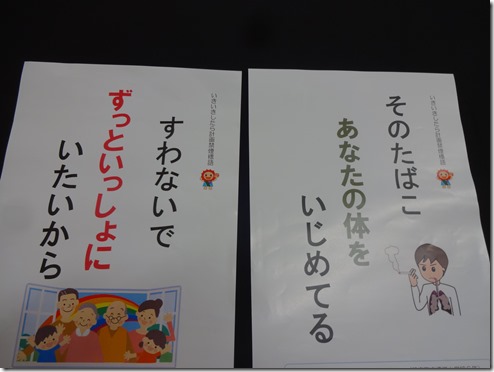 いきいきしたら計画禁煙標語
そのたばこ
あなたの体を
いじめてる
いきいきしたら計画禁煙標語
すわないで
ずっといっしょに
いたいから